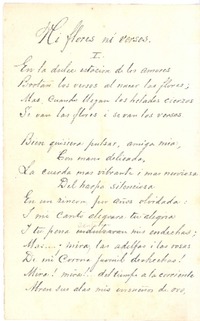 Ni flores ni versos.
I.
En la dulce estación de los amores
Brotan los versos al nacer las flores;
Mas, cuando llegan los helados cierzos
Se van las flores i se van los versos.
Bien quisiera pulsar, amiga mia,
Con mano delicada,
La cuerda mas vibrante i mas nerviosa
Del harpa silenciosa
En un rincon por años olvidada:
I mi canto alegrara tu alegria
I tu pena endulzaran mis endechas;
Mas....; mira, las adelfas i las rosas
De mi corona juvenil deshechas!
Mira! mira!.. del tiempo a la corriente
Abren sus alas mis ensueños de oro,